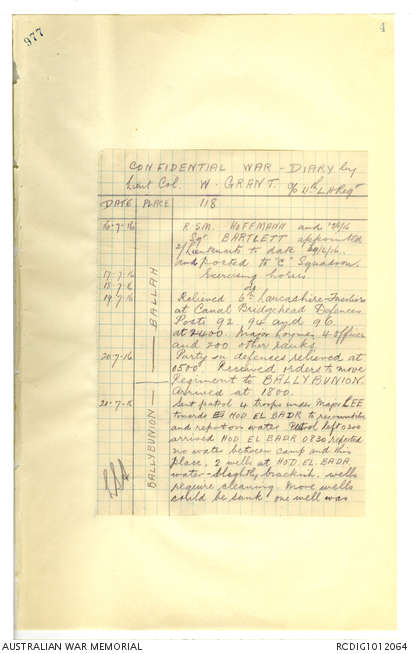 977
4
CONFIDENTIAL WAR - DIARY by
Lieut Col. W. GRANT. O/C 11th L.H. Regt
DATE PLACE 118
16-7-16 R.S.M. HOFFMANN and
Sgt BARTLETT appointed
2/Lieutenants to date 29/6/16
and posted to "C" Squadron.
17-7-16 Exercising horses
18-7-16 do
19-7-16 Relieved 6th Lancashire Fusiliers
at Canal Bridgehead Defences
Posts 92, 94 and 96
at 2400. Major Loynes 4 officers
and 200 other ranks
20-7-16 Party on defences relieved at
0500. Received orders to move
Regiment to BALLYBUNION.
Arrived at 1800.
21-7-16 Sent patrol 4 troops under Major LEE
towards HOD EL BADR to reconnoitre
and report on water. Patrol left 0200
arrived HOD EL BADR 0830 reported
no water between camp and this
place. 2 wells at HOD. EL. BADR
water - slightly brackish. wells
require cleaning. More wells
could be sunk one well was
BALLAH
BALLYBUNION
AUSTRALIAN WAR MEMORIAL
RCDIG1012064